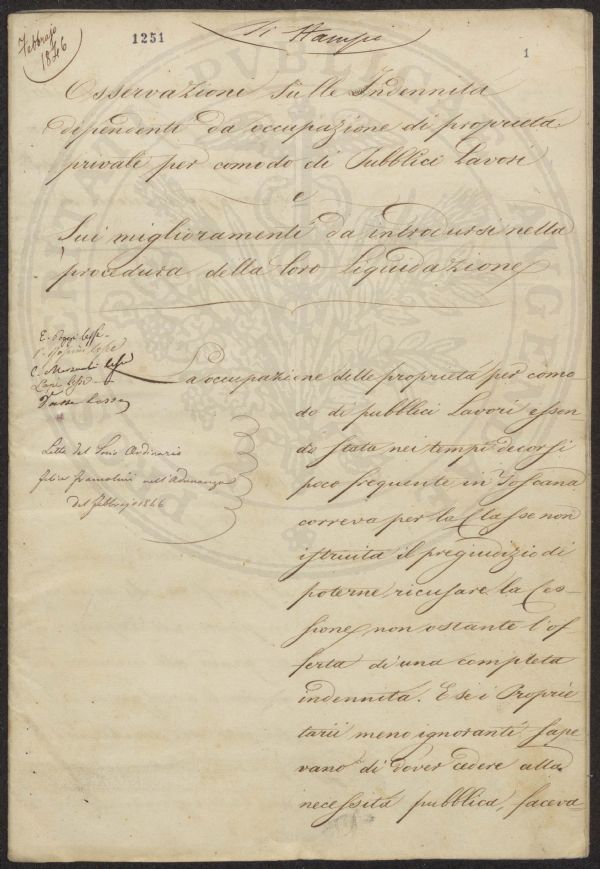 Febbrajo
1846
1251
Si Stampi
1
Osservazioni sulle Indennità
dipendenti da occupazione di proprietà
private per comodo di Pubblici Lavori
e
Sui miglioramenti da introdursi nella
procedura della loro liquidazione
E. Poggi lesse
lesse
C. lesse
lesse
Letta dal Socio Ordinario
Felice Francolini nell'Adunanza
del Febbrajo 1846
La occupazione delle proprietà per como
do di pubblici Lavori essen
do stata nei tempi decorsi
poco frequente in Toscana
correva per la Classe non
istruita il pregiudizio di
poterne ricusare la Ces-
sione, non ostante l'of
ferta di una completa
indennità. E se i Proprie
tarii meno ignoranti sape
vano di dover cedere alla
necessità pubblica, faceva-